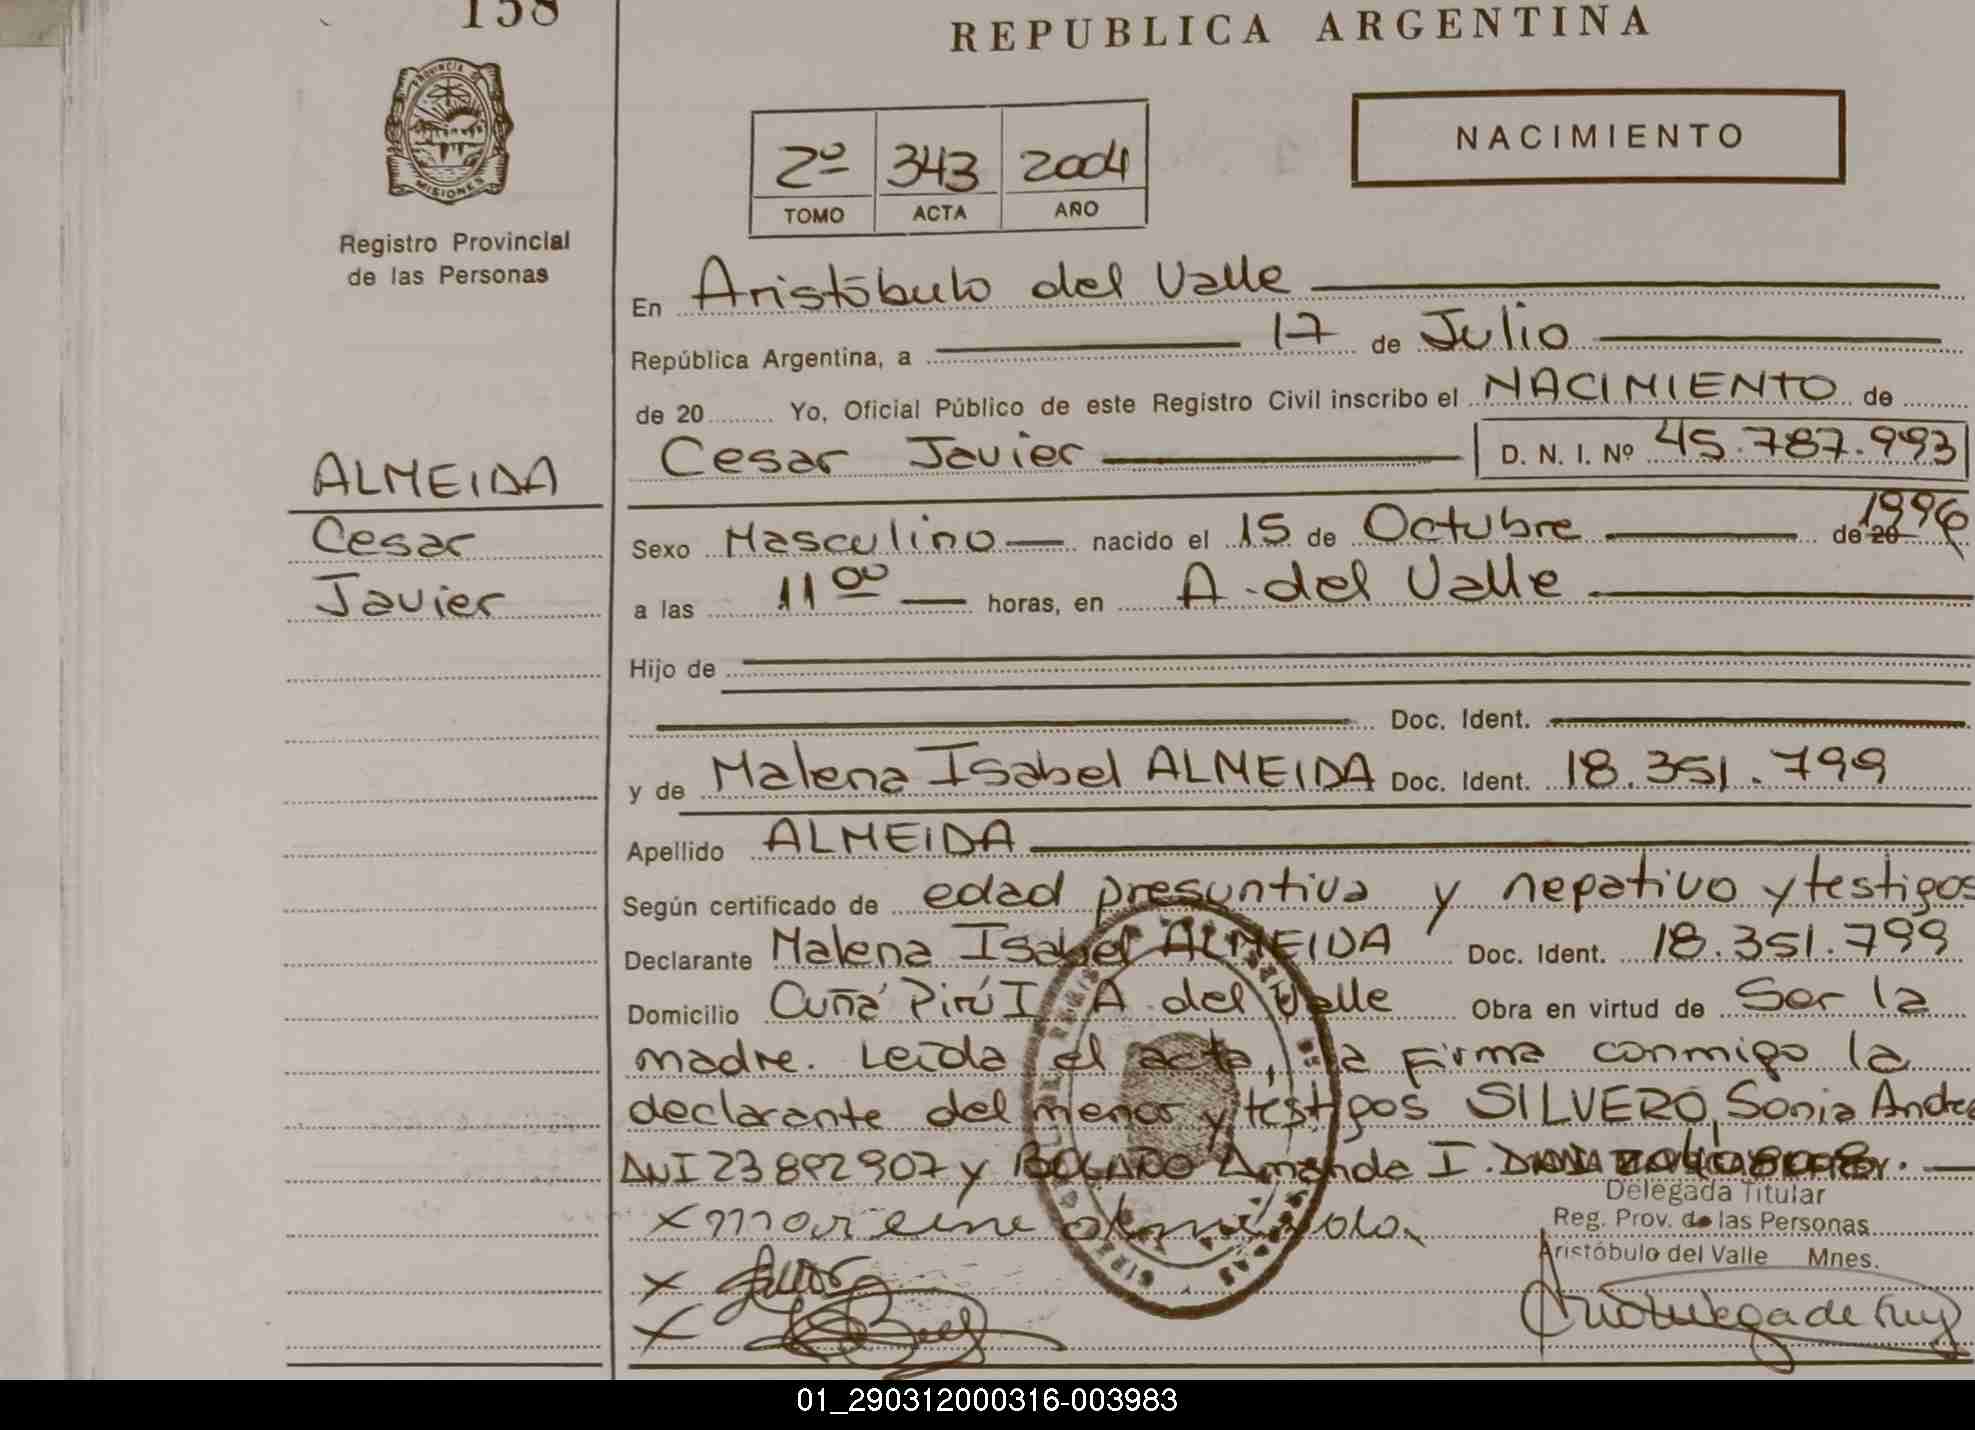 158
REPUBLICA ARGENTINA
PROVINCIA DE
MISIONES
Registro Provincial
de las Personas
NACIMIENTO
2º 343 2004
TOMO ACTA AÑO
En Aristóbulo del Valle
República Argentina, a 17 de Julio
de 20 Yo, Oficial Público de este Registro Civil inscribo el NACIMIENTO de
Cesar Javier D. N. I. Nº 45.787.993
ALMEIDA
Cesar
Javier
Sexo Masculino nacido el 15 de Octubre de 20 1996
a las 11 00 horas, en A. del Valle
Hijo de
Doc. Ident.
y de Malena Isabel ALMEIDA Doc. Ident. 18.351.799
Apellido ALMEIDA
Según certificado de edad presuntiva y negativo y testigos
Declarante Malena Isabel ALMEIDA Doc. Ident. 18.351.799
Domicilio Cuñá Pirú I A. del Valle Obra en virtud de Ser la
madre. Leída el acta, la firma conmigo la
declarante del menor y testigos SILVERO, Sonia Andrea
DNI 23892907 y Amanda I.
Delegada Titular
Reg. Prov. de las Personas
Aristóbulo del Valle Mnes.
01_290312000316-003983